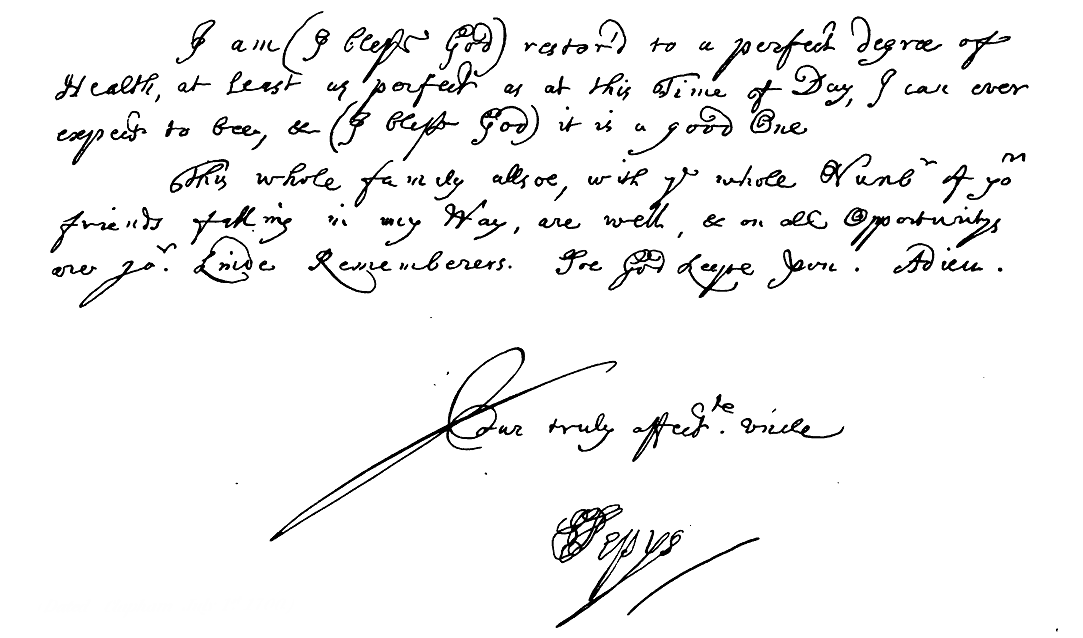 I am (I bless God) restor'd to a perfect degree of
Health, at least as perfect as at this Time of Day, I can ever
expect to bee, & (I bless God) it is a good One
This whole family allsoe, with yᵉ whole Numbʳ of yoʳ
friends falling in my Way, are well, & on all Opportunitys
are yoʳ. kinde Rememberers. Soe God keepe you. Adieu.
Your truly affectᵗᵉ. Uncle
SPepys